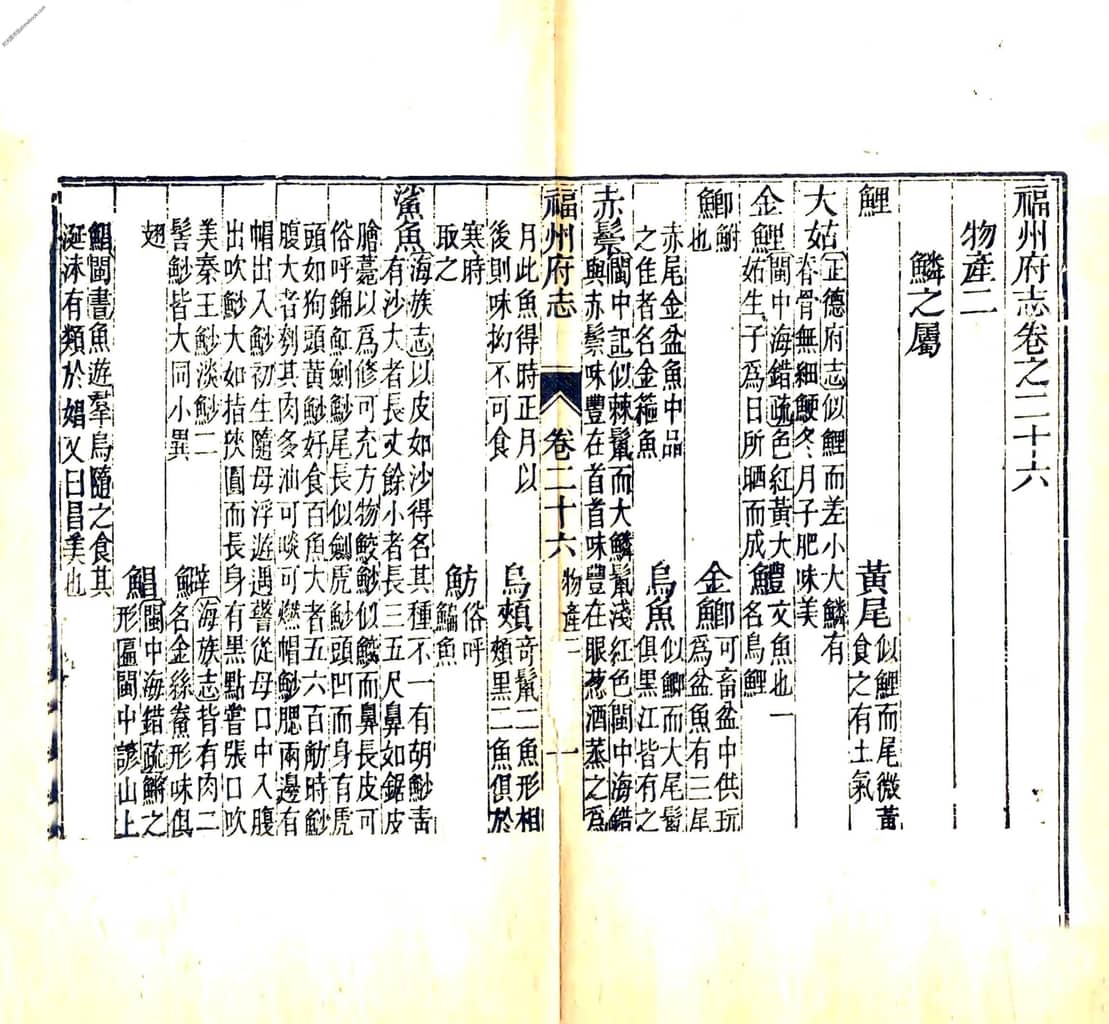 福州府志卷之二十六
物產二
鱗之屬
鯉
黃尾 似鯉而尾微黃
食之有土氣
大姑 正德府志似鯉而差小大鱗有
脊骨無細鯁冬月子肥味美
金鯉 閩中海錯疏色紅黃大
姑生子為日所晒而成
鱧 文魚也一
名烏鯉
鯽 鮒
也
金鯽 可畜盆中供玩
為盆魚有三尾
赤尾金盆魚中品
之佳者名金箍魚
烏魚 似鯽而大尾鬣
俱黑江皆有之
赤鬃 閩中記似棘鬣而大鱗鬣淺紅色閩中海錯
與赤鬃味豐在首首味豐在眼蔥酒蒸之為
福州府志 卷二十六 物產二 一
月此魚得時正月以
後則味拘不可食
烏頰 奇鬣二魚形相
頰黑二魚俱於
寒時
取之
魴 俗呼
鯿魚
鯊魚 海族志以皮如沙得名其種不一有胡魦青
有沙大者長丈餘小者長三五尺鼻如鋸皮
膾薧以為修可充方物鮫魦似鱶而鼻長皮可
俗呼錦魟劍魦尾長似劍虎魦頭凹而身有虎
頭如狗頭黃魦好食百魚大者五六百觔時魦
腹大者剎其肉多油可啖可燃帽魦腮兩邊有
帽出入魦初生隨母浮遊遇警從母口中入腹
出吹魦大如指狹圓而長身有黑點嘗張口吹
美秦王魦淡魦二
髻魦皆大同小異
海族志皆有肉二
名金絲鮝形味俱
翅
鯧 閩中海錯疏鱗之
形匾閩中諺山上
鯧閩書魚遊羣烏隨之食其
涎沫有類於娼又曰昌美也